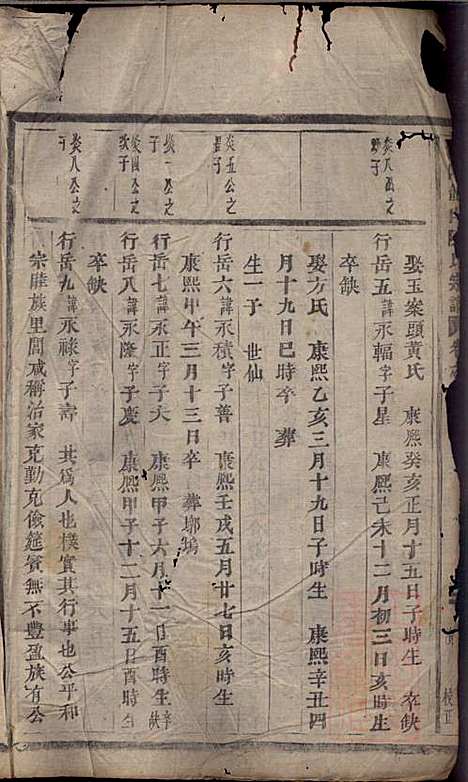 陳氏宗譜
校正
娶玉案頭黃氏 康熙癸亥正月十五日子時生 卒缺
炎八公之
子
行岳五諱永輻字子星 康熙己未十二月初三日亥時生
卒缺
娶方氏 康熙乙亥三月十九日子時生 康熙辛丑四
月十九日巳時卒 葬
生一子 世仙
炎五公之
子
行岳六諱永積字子善 康熙壬戌五月廿七日亥時生
康熙甲午三月十三日卒 葬塢
炎一公之
子
行岳七諱永正字子天 康熙甲子六月十一日酉時生 卒缺
炎四公之
次子
行岳八諱永隆字子慶 康熙甲子十二月十五日酉時生
卒缺
炎八公之
子
行岳九諱永祿字子壽 其為人也樸實其行事也公平和
宗睦族里閭咸稱治家克勤克儉筵賓無不豐盈族有公